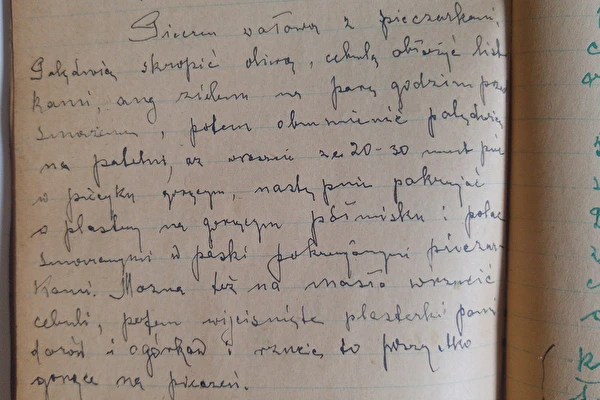 Pieczeń wałowa z pieczarkami.
Polędwicę skropić oliwą, cebulą obłożyć list-
kami, ang zielem na parę godzin przed
smażeniem, potem obrumienić polędwicę
na patelni, aż wreszcie za 20-30 minut piec
w piecyku gorącym, następnie pokrajać
o plastry na gorącym półmisku i polać
smażonymi w paski pokrajanymi pieczar-
kami. Można też na masło wrzucić
cebuli, potem wyciśnięte plasterki pomi
dorów i ogórków i rzucić to przy
gorące na pieczeń.